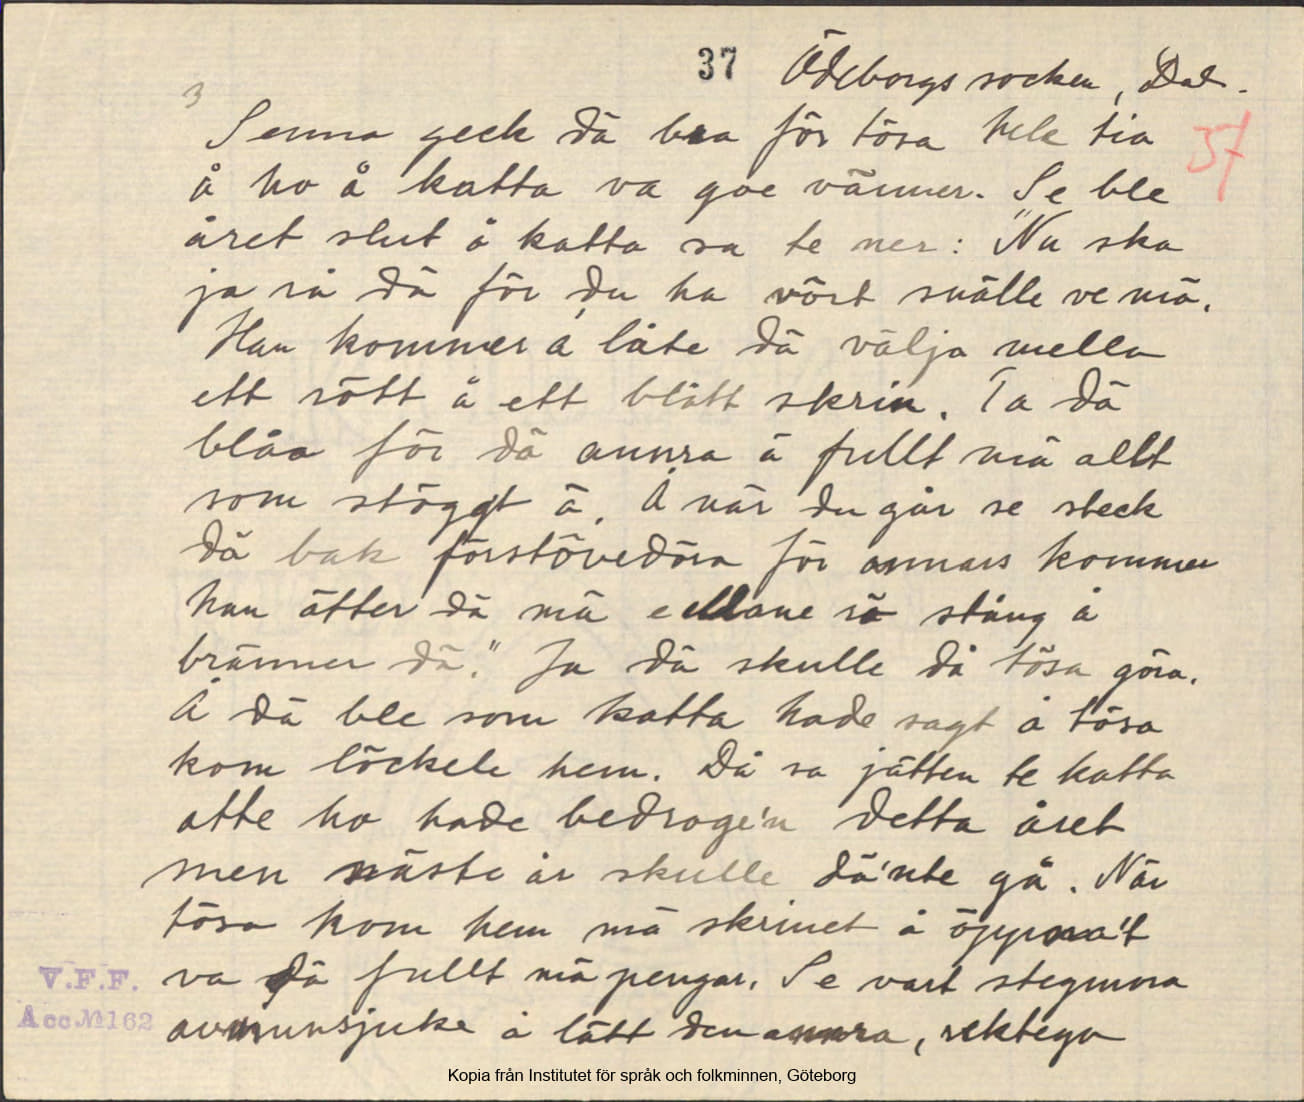 37 Ödeborgs socken, Dal.
3
Senna geck dä bra för tösa hele tia
37
å ho å katta va goe vänner. Se ble
året slut å katta sa te ner: "Nu ska
ja rå dä för du ha vört snälle ve mä.
Han kommer å låte dä välja mella
ett rött å ett blått skrin. Ta dä
blåa för dä annra ä fullt mä allt
som stöggt ä. Å när du går se steck
dä bak förstövedöra för annars kommer
han ätter dä mä e ellane rö stång å
bränner dä." Ja dä skulle då tösa göra.
Å dä ble som katta hade sagt å tösa
kom löckele hem. Då sa jätten te katta
atte ho hade bedroge'n detta året
men näste år skulle dä'nte gå. När
tösa kom hem mä skrinet å öppna't
va dä fullt mä pengar. Se vart stegmora
avunnsjuke å lätt den annra, rektega
V.F.F.
Acc. № 162
Kopia från Institutet för språk och folkminnen, Göteborg